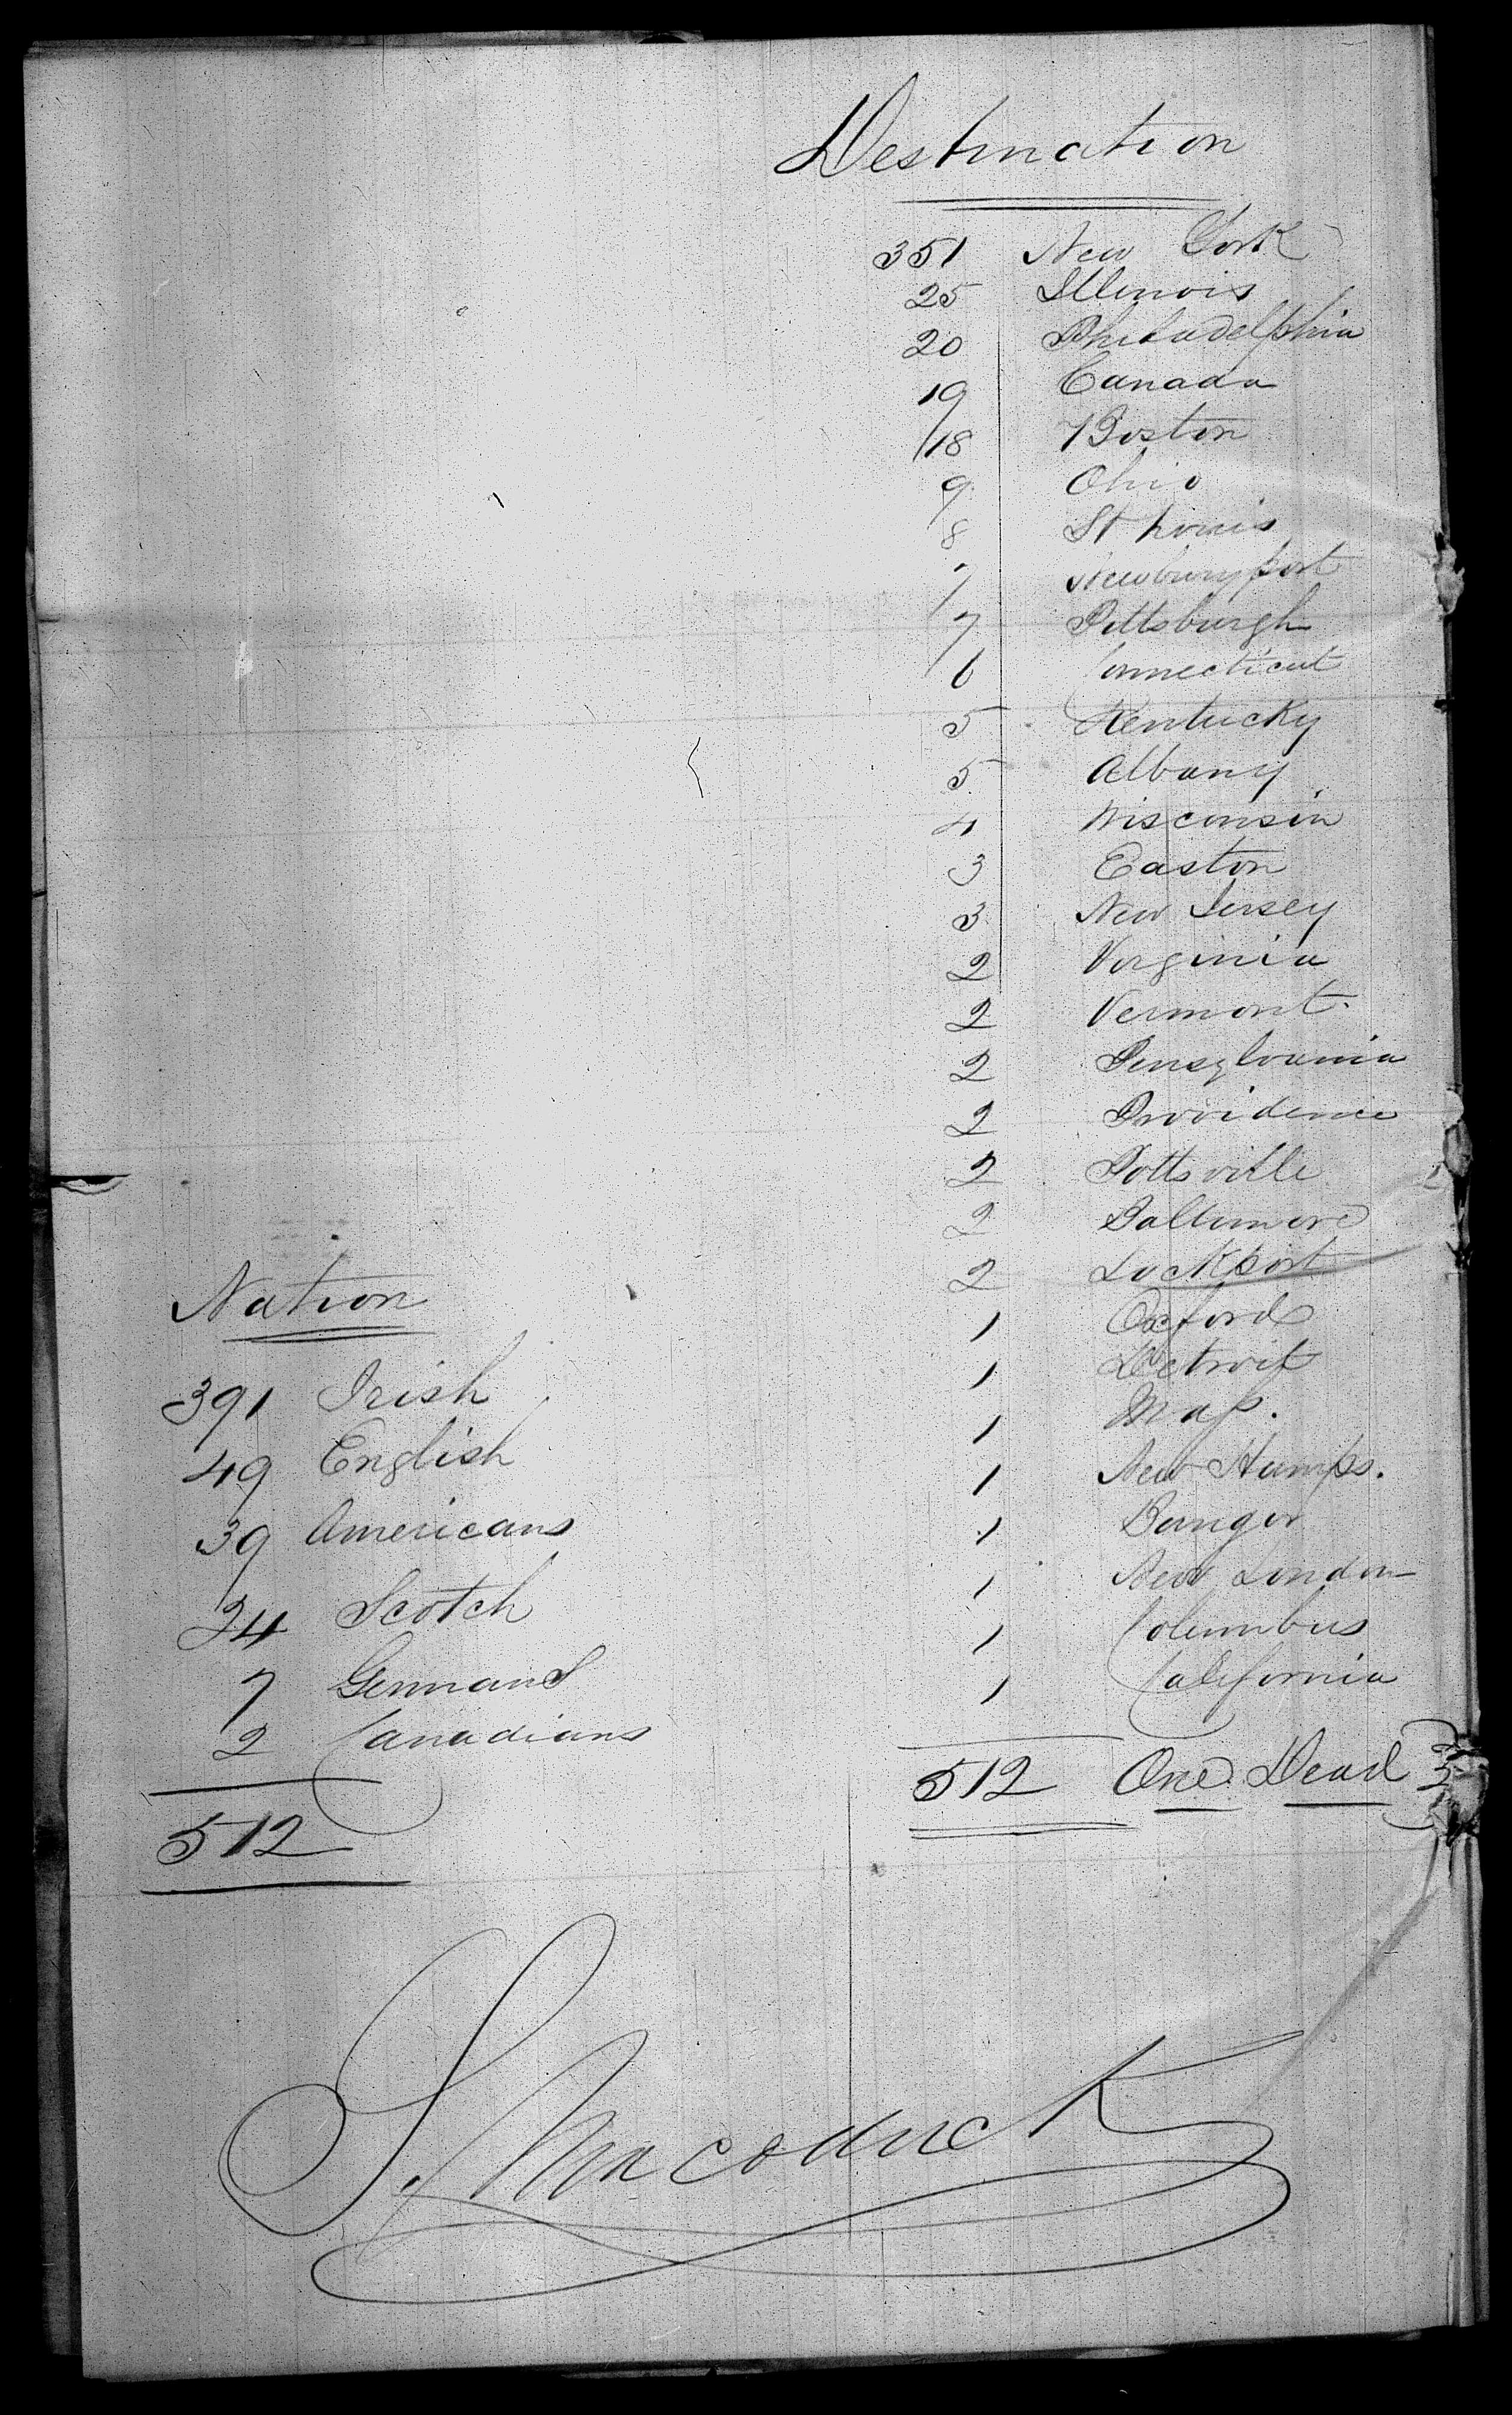 Destination
351 New York
25 Illinois
20 Philadelphia
19 Canada
18 Boston
9 Ohio
8 St Louis
7 Newburyport
7 Pittsburgh
6 Connecticut
5 Kentucky
5 Albany
4 Wisconsin
3 Easton
3 New Jersey
2 Virginia
2 Vermont
2 Pensylvania
2 Providence
2 Pottsville
2 Baltimore
2 Lockport
1 Oxford
1 Detroit
1 Mass.
1 New Hamps.
1 Bangor
1 New London
1 Columbus
1 California
512 One Dead
Nation
391 Irish
49 English
39 Americans
24 Scotch
7 Germans
2 Canadians
512